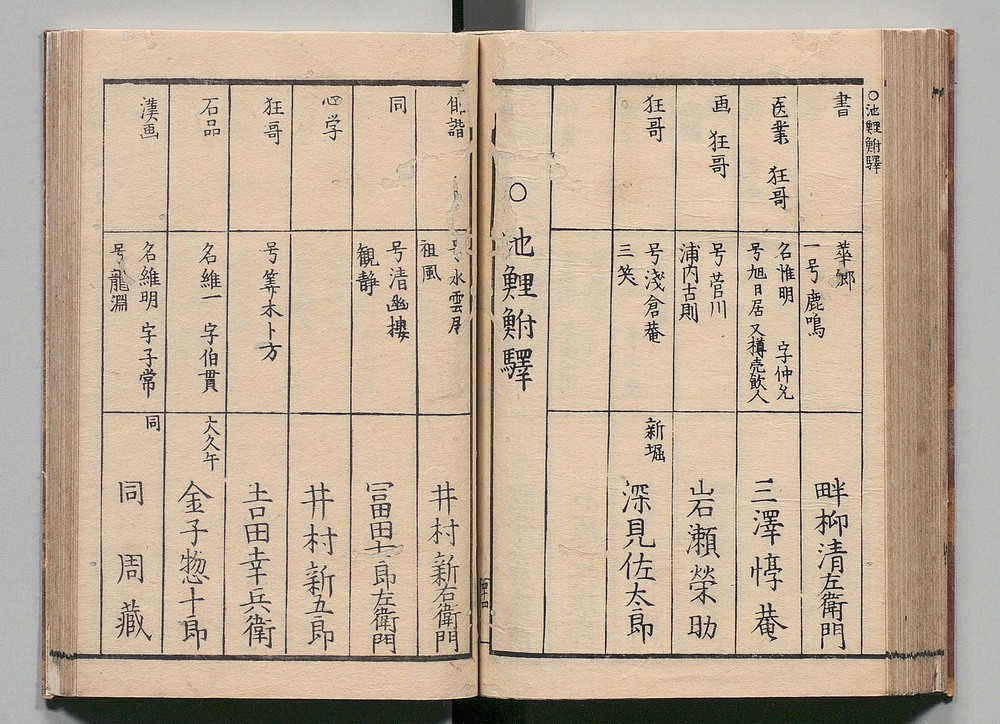 ○池鯉鮒驛
書
華郷
一号鹿鳴
畔柳清左衛門
医業 狂哥
名惟明 字仲允
号旭日居 又樽売飲人
三澤惇菴
画 狂哥
号菅川
浦内古則
岩瀬榮助
狂哥
号淺倉菴
三笑
新堀
深見佐太郎
○池鯉鮒驛
俳諧
号水雲居
祖風
井村新右衛門
同
号清幽樓
観静
冨田十郎左衛門
心学
井村新五郎
狂哥
号筭木卜方
吉田幸兵衛
石品
名維一 字伯貫
大久午
金子惣十郎
漢画
名維明 字子常
号龍淵
同
同 周藏